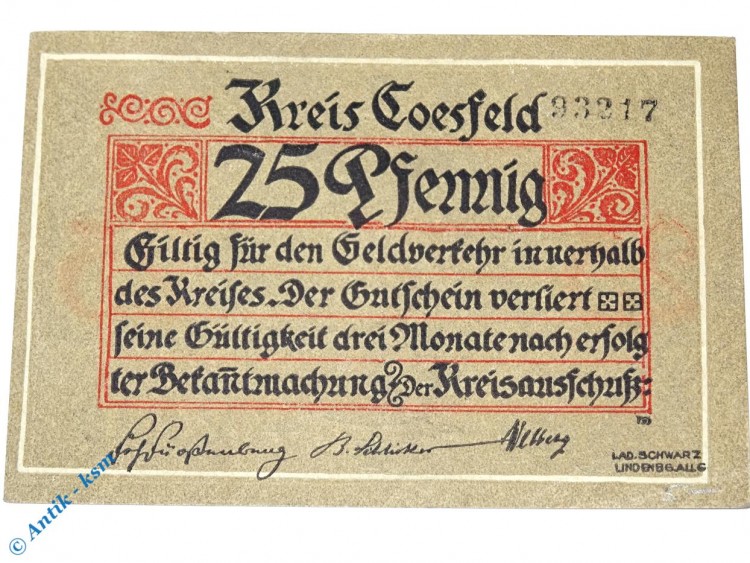 Kreis Coesfeld 93217
25 Pfennig
Giltig für den Geldverkehr innerhalb
des Kreises. Der Gutschein verliert
seine Gültigkeit drei Monate nach erfolg
ter Bekan̄tmachung Der Kreisausschuß:
LAD. SCHWARZ
LINDENBG. ALLG
© Antik - ksm